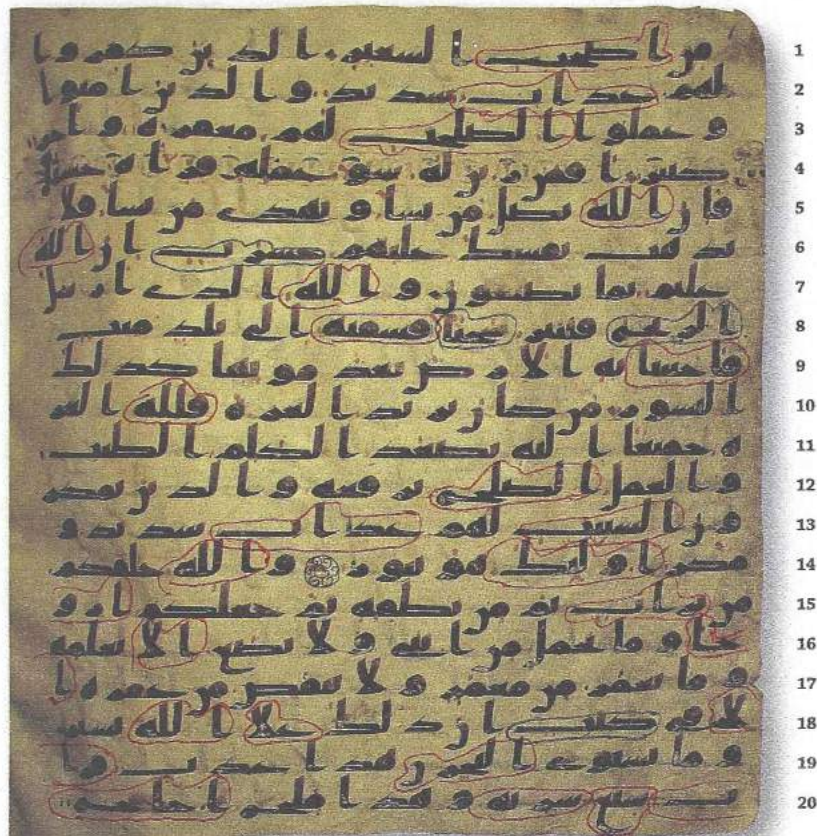 من اصحب السعير الذين كفروا 1
لهم عذاب شديد والذين امنوا 2
وعملوا الصلحت لهم مغفرة واجر 3
كبير افمن زين له سو عمله فراه حسنا 4
فان الله يضل من يشا ويهدي من يشا فلا 5
تذهب نفسك عليهم حسرت ان الله 6
عليم بما يصنعون والله الذي ارسل 7
الريح فتثير سحبا فسقنه الى بلد ميت 8
فاحيينا به الارض بعد موتها كذلك 9
النشور من كان يريد العزة فلله العز 10
ة جميعا اليه يصعد الكلم الطيب 11
والعمل الصلح يرفعه والذين يمكر 12
ون السيت لهم عذاب شديد و 13
مكر اوليك هو يبور والله خلقكم 14
من تراب ثم من نطفة ثم جعلكم ازو 15
جا وما تحمل من انثى ولا تضع الا بعلمه 16
وما يعمر من معمر ولا ينقص من عمره ا 17
لا في كتب ان ذلك على الله يسير 18
وما يستوي البحرن هذا عذب فرا 19
ت سيغ شربه وهذا ملح اجاج 20